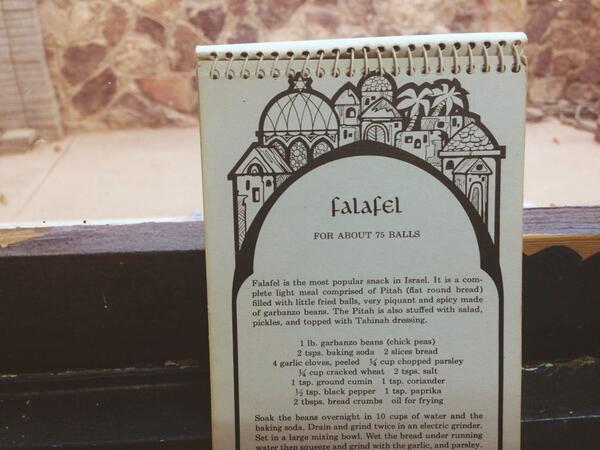 falafel
FOR ABOUT 75 BALLS
Falafel is the most popular snack in Israel. It is a com-
plete light meal comprised of Pitah (flat round bread)
filled with little fried balls, very piquant and spicy made
of garbanzo beans. The Pitah is also stuffed with salad,
pickles, and topped with Tahinah dressing.
1 lb. garbanzo beans (chick peas)
2 tsps. baking soda 2 slices bread
4 garlic cloves, peeled ¼ cup chopped parsley
¼ cup cracked wheat 2 tsps. salt
1 tsp. ground cumin 1 tsp. coriander
½ tsp. black pepper 1 tsp. paprika
2 tbsps. bread crumbs oil for frying
Soak the beans overnight in 10 cups of water and the
baking soda. Drain and grind twice in an electric grinder.
Set in a large mixing bowl. Wet the bread under running
water then squeeze and grind with the garlic, and parsley.